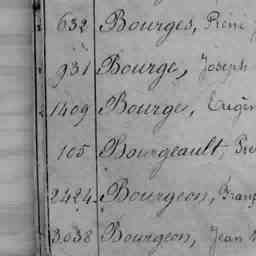 632 Bourges, Réné
931 Bourge, Joseph
1409 Bourge, Eugèn
105 Bourgeault, Pre
2424 Bourgeon, Franç
3038 Bourgeon, Jean